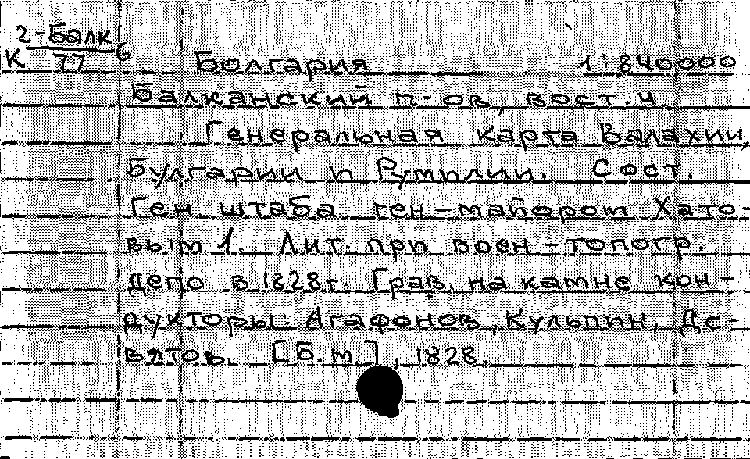 К 2-Балк/77 6
Болгария 1:840000
Балканский п-ов, вост. ч.
Генеральная карта Валахии,
Булгарии и Румилии. Сост.
Ген. штаба ген-майором Хато-
вым 1. Лит. при воен-топогр.
депо в 1828 г. Грав. на камне кон-
дукторы Агафонов, Кульпин, Де-
вятов. [Б.м.], 1828.